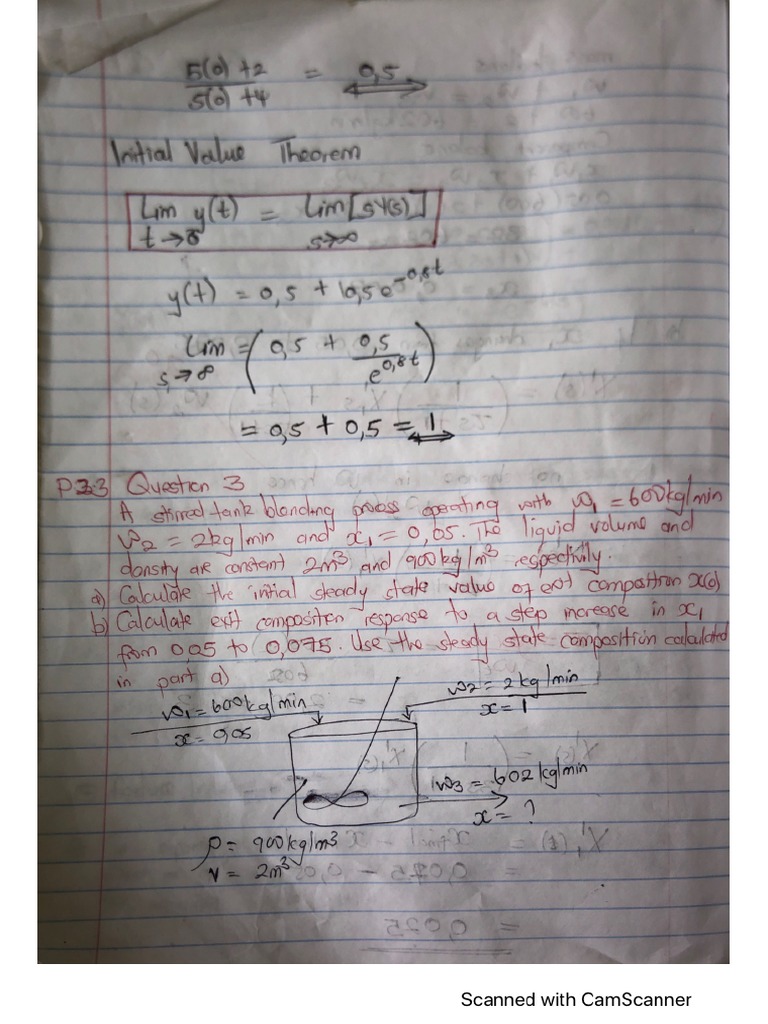 5(0) + 2 = 0,5
5(0) + 4
Initial Value Theorem
Lim y(t) = Lim [sY(s)]
t → 0 s → ∞
y(t) = 0,5 + 0,5 e^-0,8t
Lim = (0,5 + 0,5
s → ∞ e^0,8t)
= 0,5 + 0,5 = 1
Question 3
A stirred tank blending process operating with w1 = 600kg/min
w2 = 2kg/min and x1 = 0,05. The liquid volume and
density are constant 2m³ and 900kg/m³ respectivily.
a) Calculate the initial steady state value of exit composition x(0)
b) Calculate exit composition response to a step increase in x1
from 0,05 to 0,075. Use the steady state composition calculated
in part a)
w1 = 600kg/min w2 = 2kg/min
x = 0,05 x = 1
w3 = 602kg/min
x = ?
ρ = 900kg/m³
v = 2m³
Scanned with CamScanner